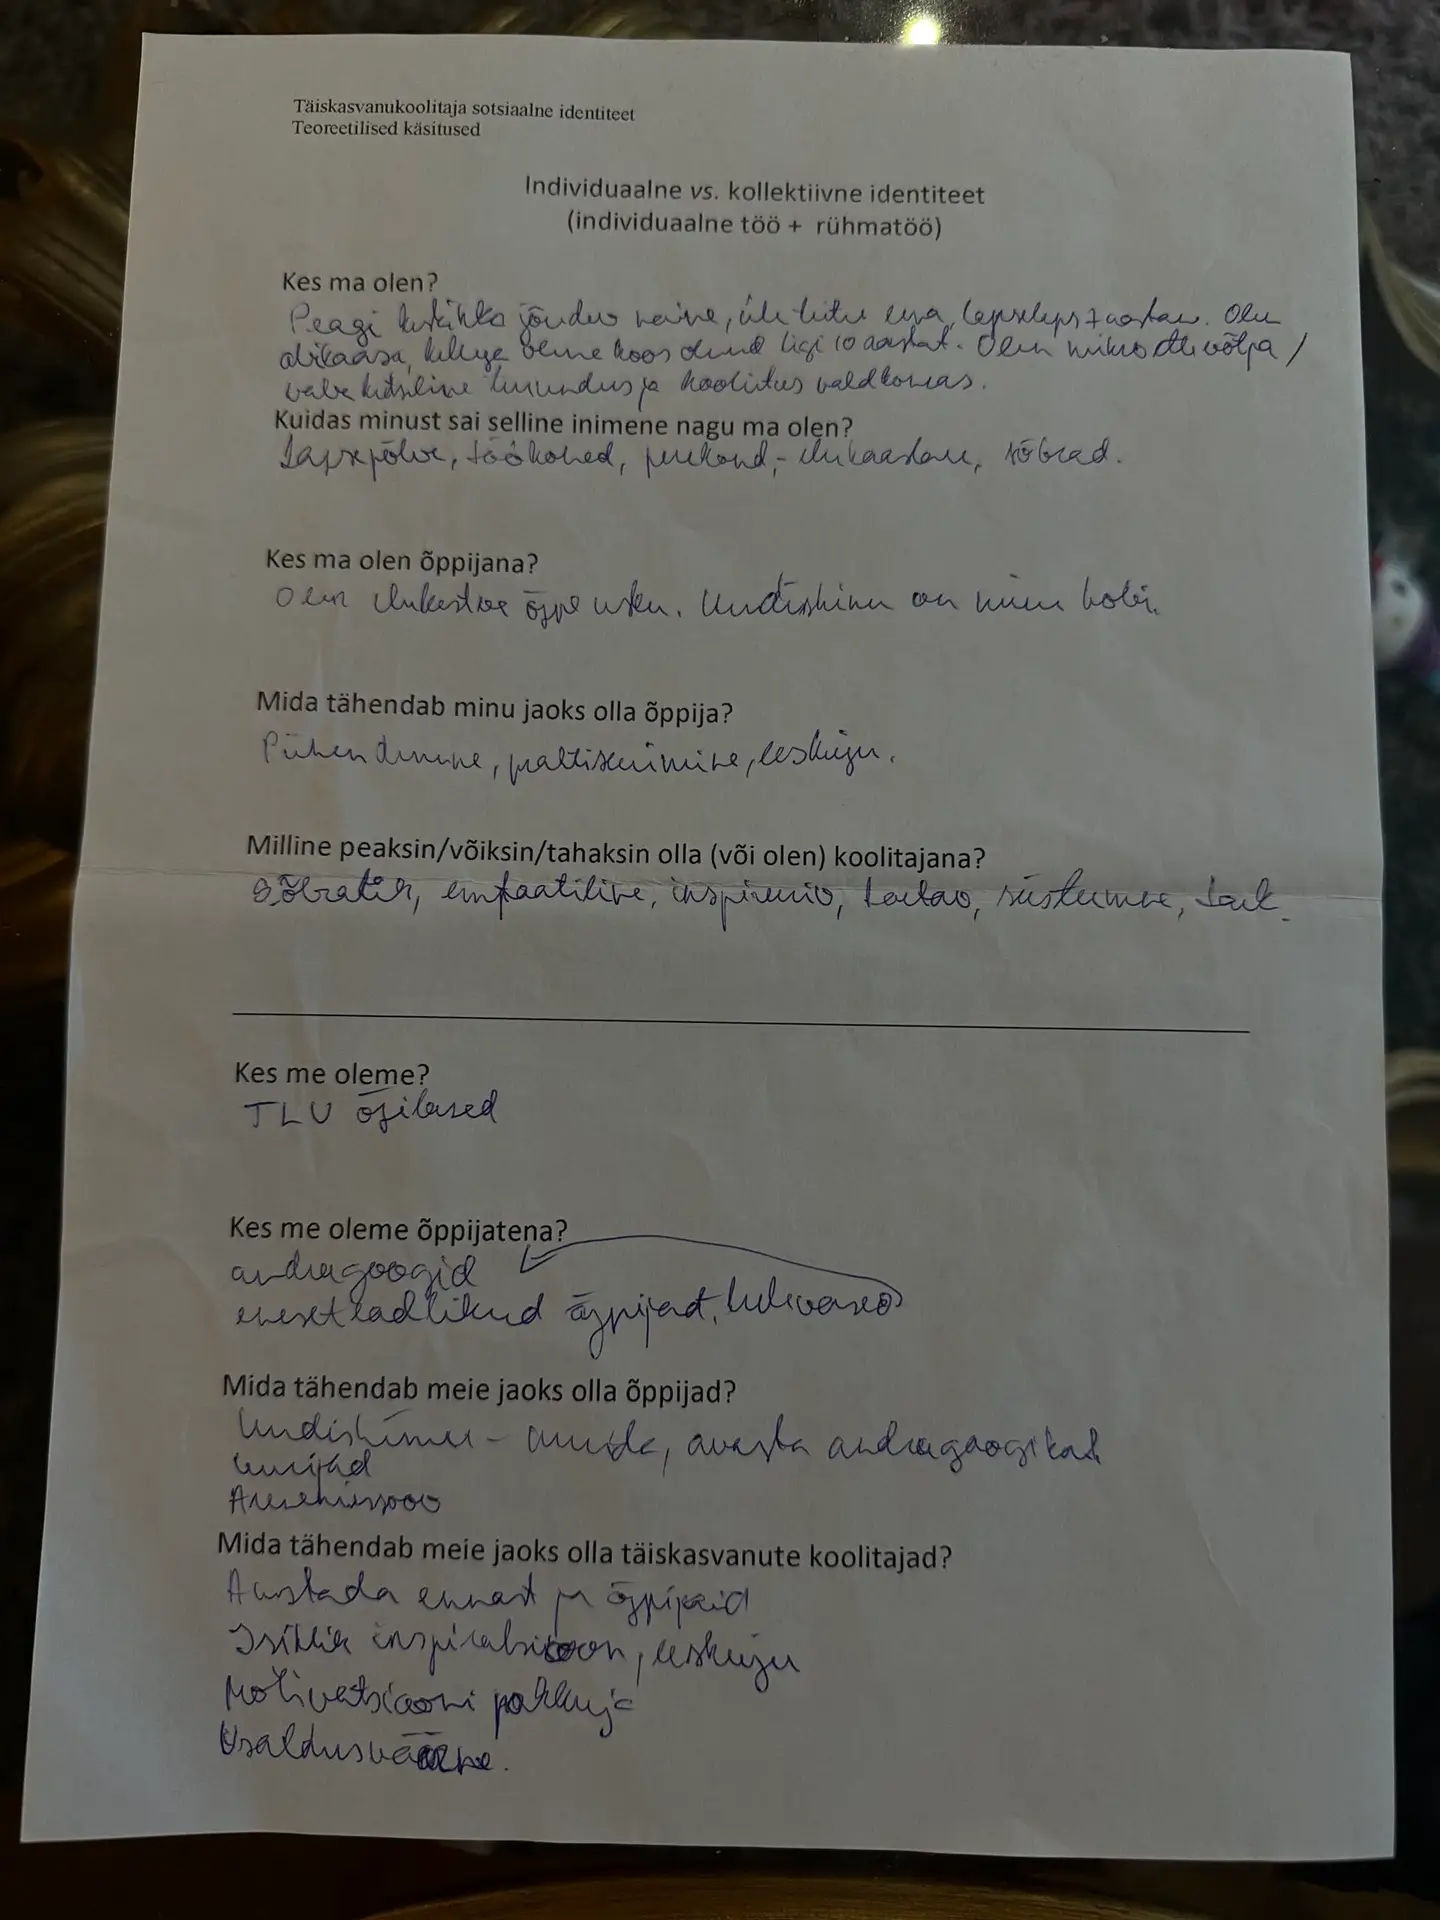 Täiskasvanukoolitaja sotsiaalne identiteet
Teoreetilised käsitused
Individuaalne vs. kollektiivne identiteet
(individuaalne töö + rühmatöö)
Kes ma olen?
Peagi jõudev naine, ema, aastane. Olen
elukaasa, kellega oleme koos olnud ligi 10 aastat. Olen mikroettevõtja /
vabakutseline turundus ja koolitus valdkonnas.
Kuidas minust sai selline inimene nagu ma olen?
Lapsepõlve, töökohad, perekond, - elukaaslane, sõbrad.
Kes ma olen õppijana?
Olen elukestva õppe usku. Uudishimu on minu hobi.
Mida tähendab minu jaoks olla õppija?
Pühendumine, praktiseerimine, eeskuju.
Milline peaksin/võiksin/tahaksin olla (või olen) koolitajana?
Sõbralik, empaatiline, inspireeriv, toetav, süsteemne, tark.
Kes me oleme?
TLU õpilased
Kes me oleme õppijatena?
andragoogid
eneseteadlikud õppijad, tulevased
Mida tähendab meie jaoks olla õppijad?
Uudishimu - uurida, avasta andragoogikat
uurijad
Arenemissoov
Mida tähendab meie jaoks olla täiskasvanute koolitajad?
Austada ennast ja õppijaid
Isiklik inspiratsioon, eeskuju
Motivatsiooni pakkuja
Usaldusväärne.